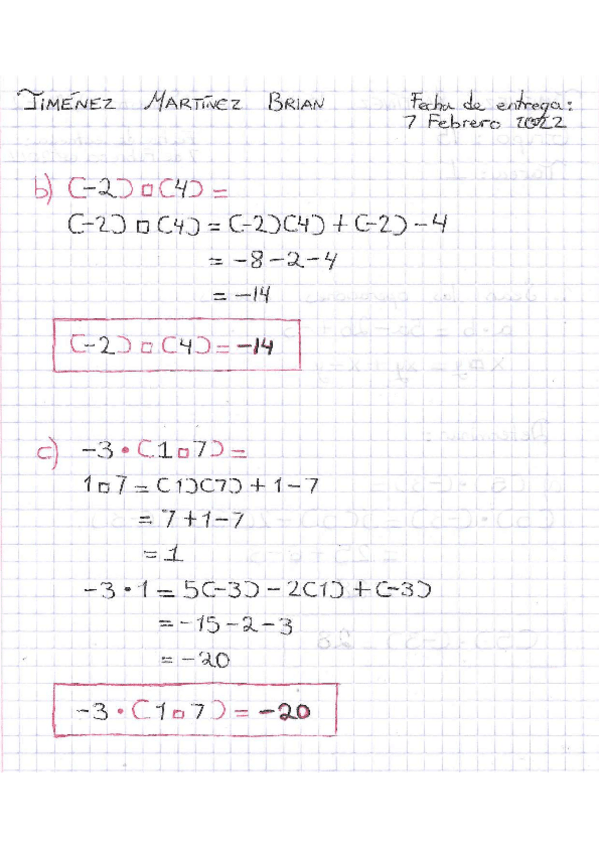 JIMÉNEZ MARTÍNEZ BRIAN
Fecha de entrega:
7 Febrero 2022
b) (-2) □ (4) =
(-2) □ (4) = (-2)(4) + (-2) - 4
= -8 - 2 - 4
= -14
(-2) □ (4) = -14
c) -3 • (1 □ 7) =
1 □ 7 = (1)(7) + 1 - 7
= 7 + 1 - 7
= 1
-3 • 1 = 5(-3) - 2(1) + (-3)
= -15 - 2 - 3
= -20
-3 • (1 □ 7) = -20